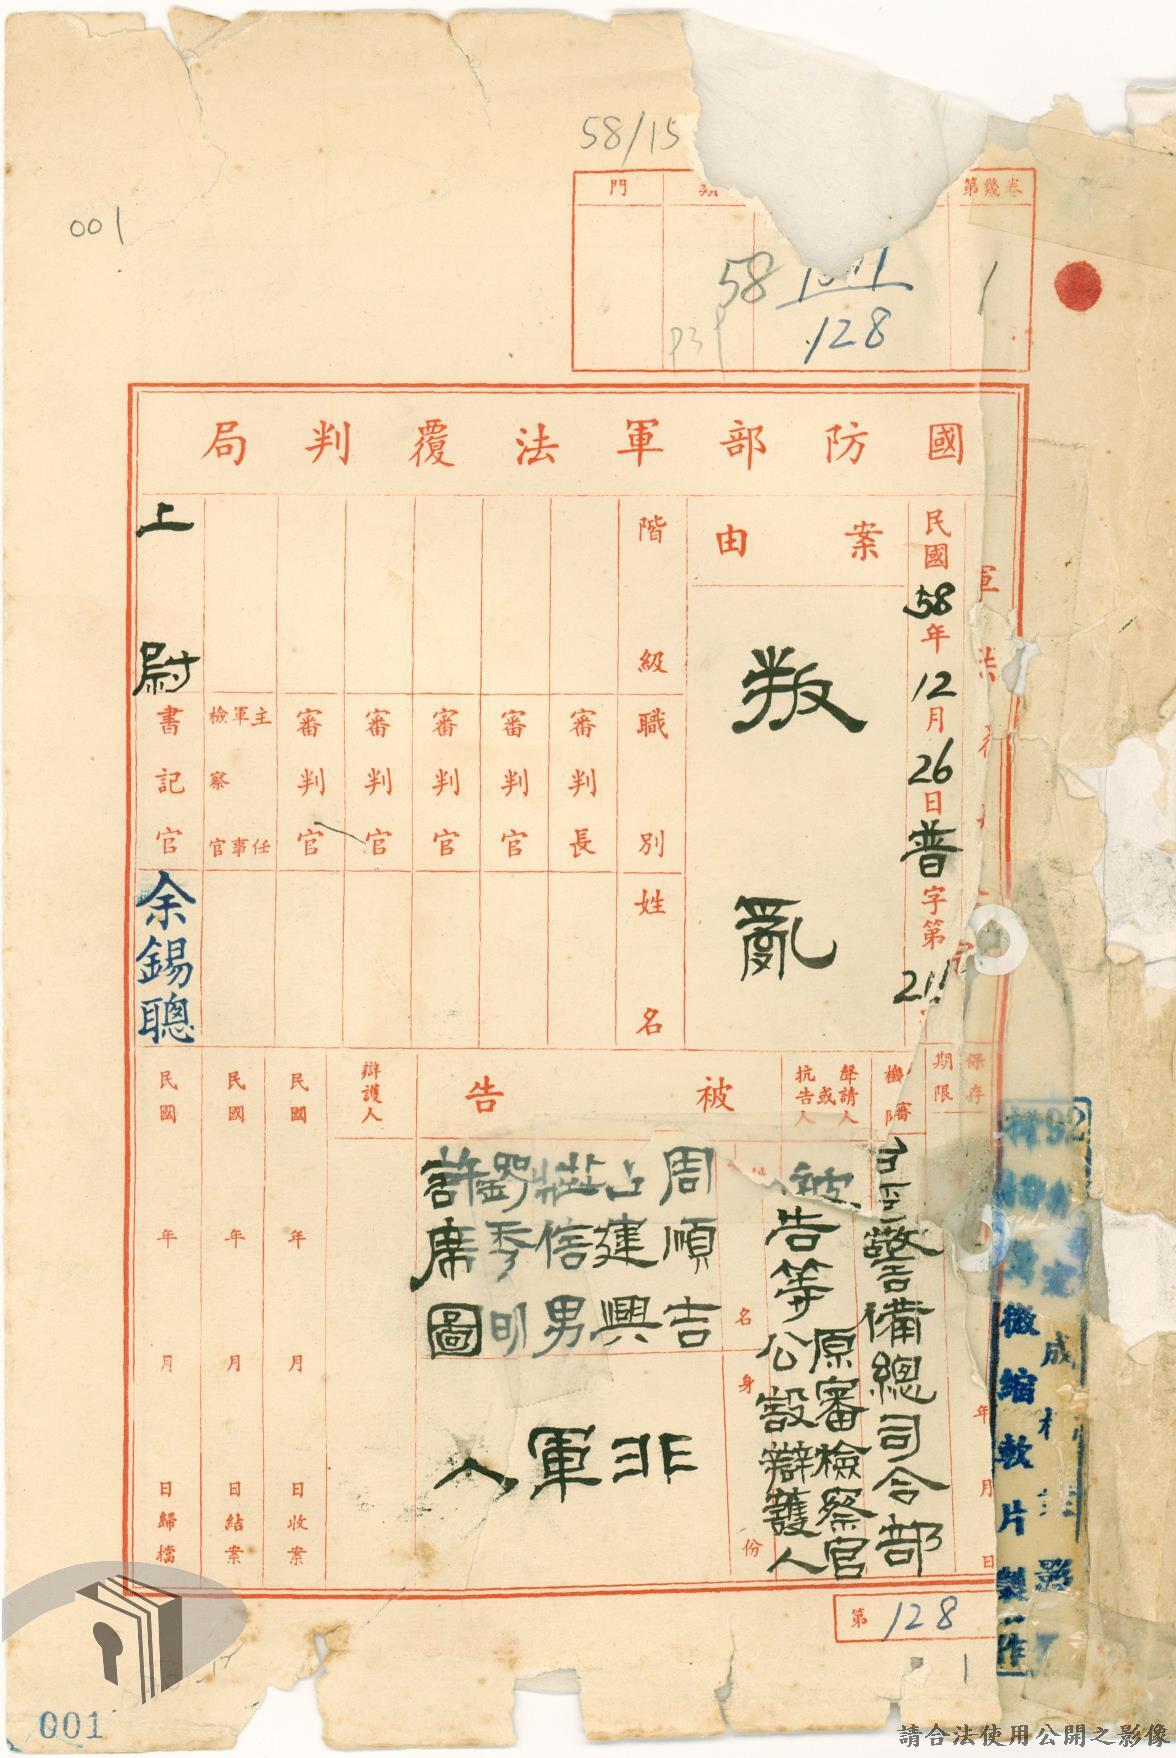 58/15
001
門
第幾卷
58
128
1
國防部軍法覆判局
民國58年12月26日普字第211
案由
叛亂
階級
職別
姓名
審判長
審判官
審判官
審判官
審判官
主任軍事檢察官
上尉
書記官
余錫聰
保存
期限
年月日
機
審
警備總司令部
聲請人或抗告人
原審檢察官
被告等公設辯護人
被告
名
身份
周順吉
建興
莊信男
劉秀明
許席圖
非軍人
辯護人
民國年月日收案
民國年月日結案
民國年月日歸檔
微縮軟片製作
第128
1
001
請合法使用公開之影像